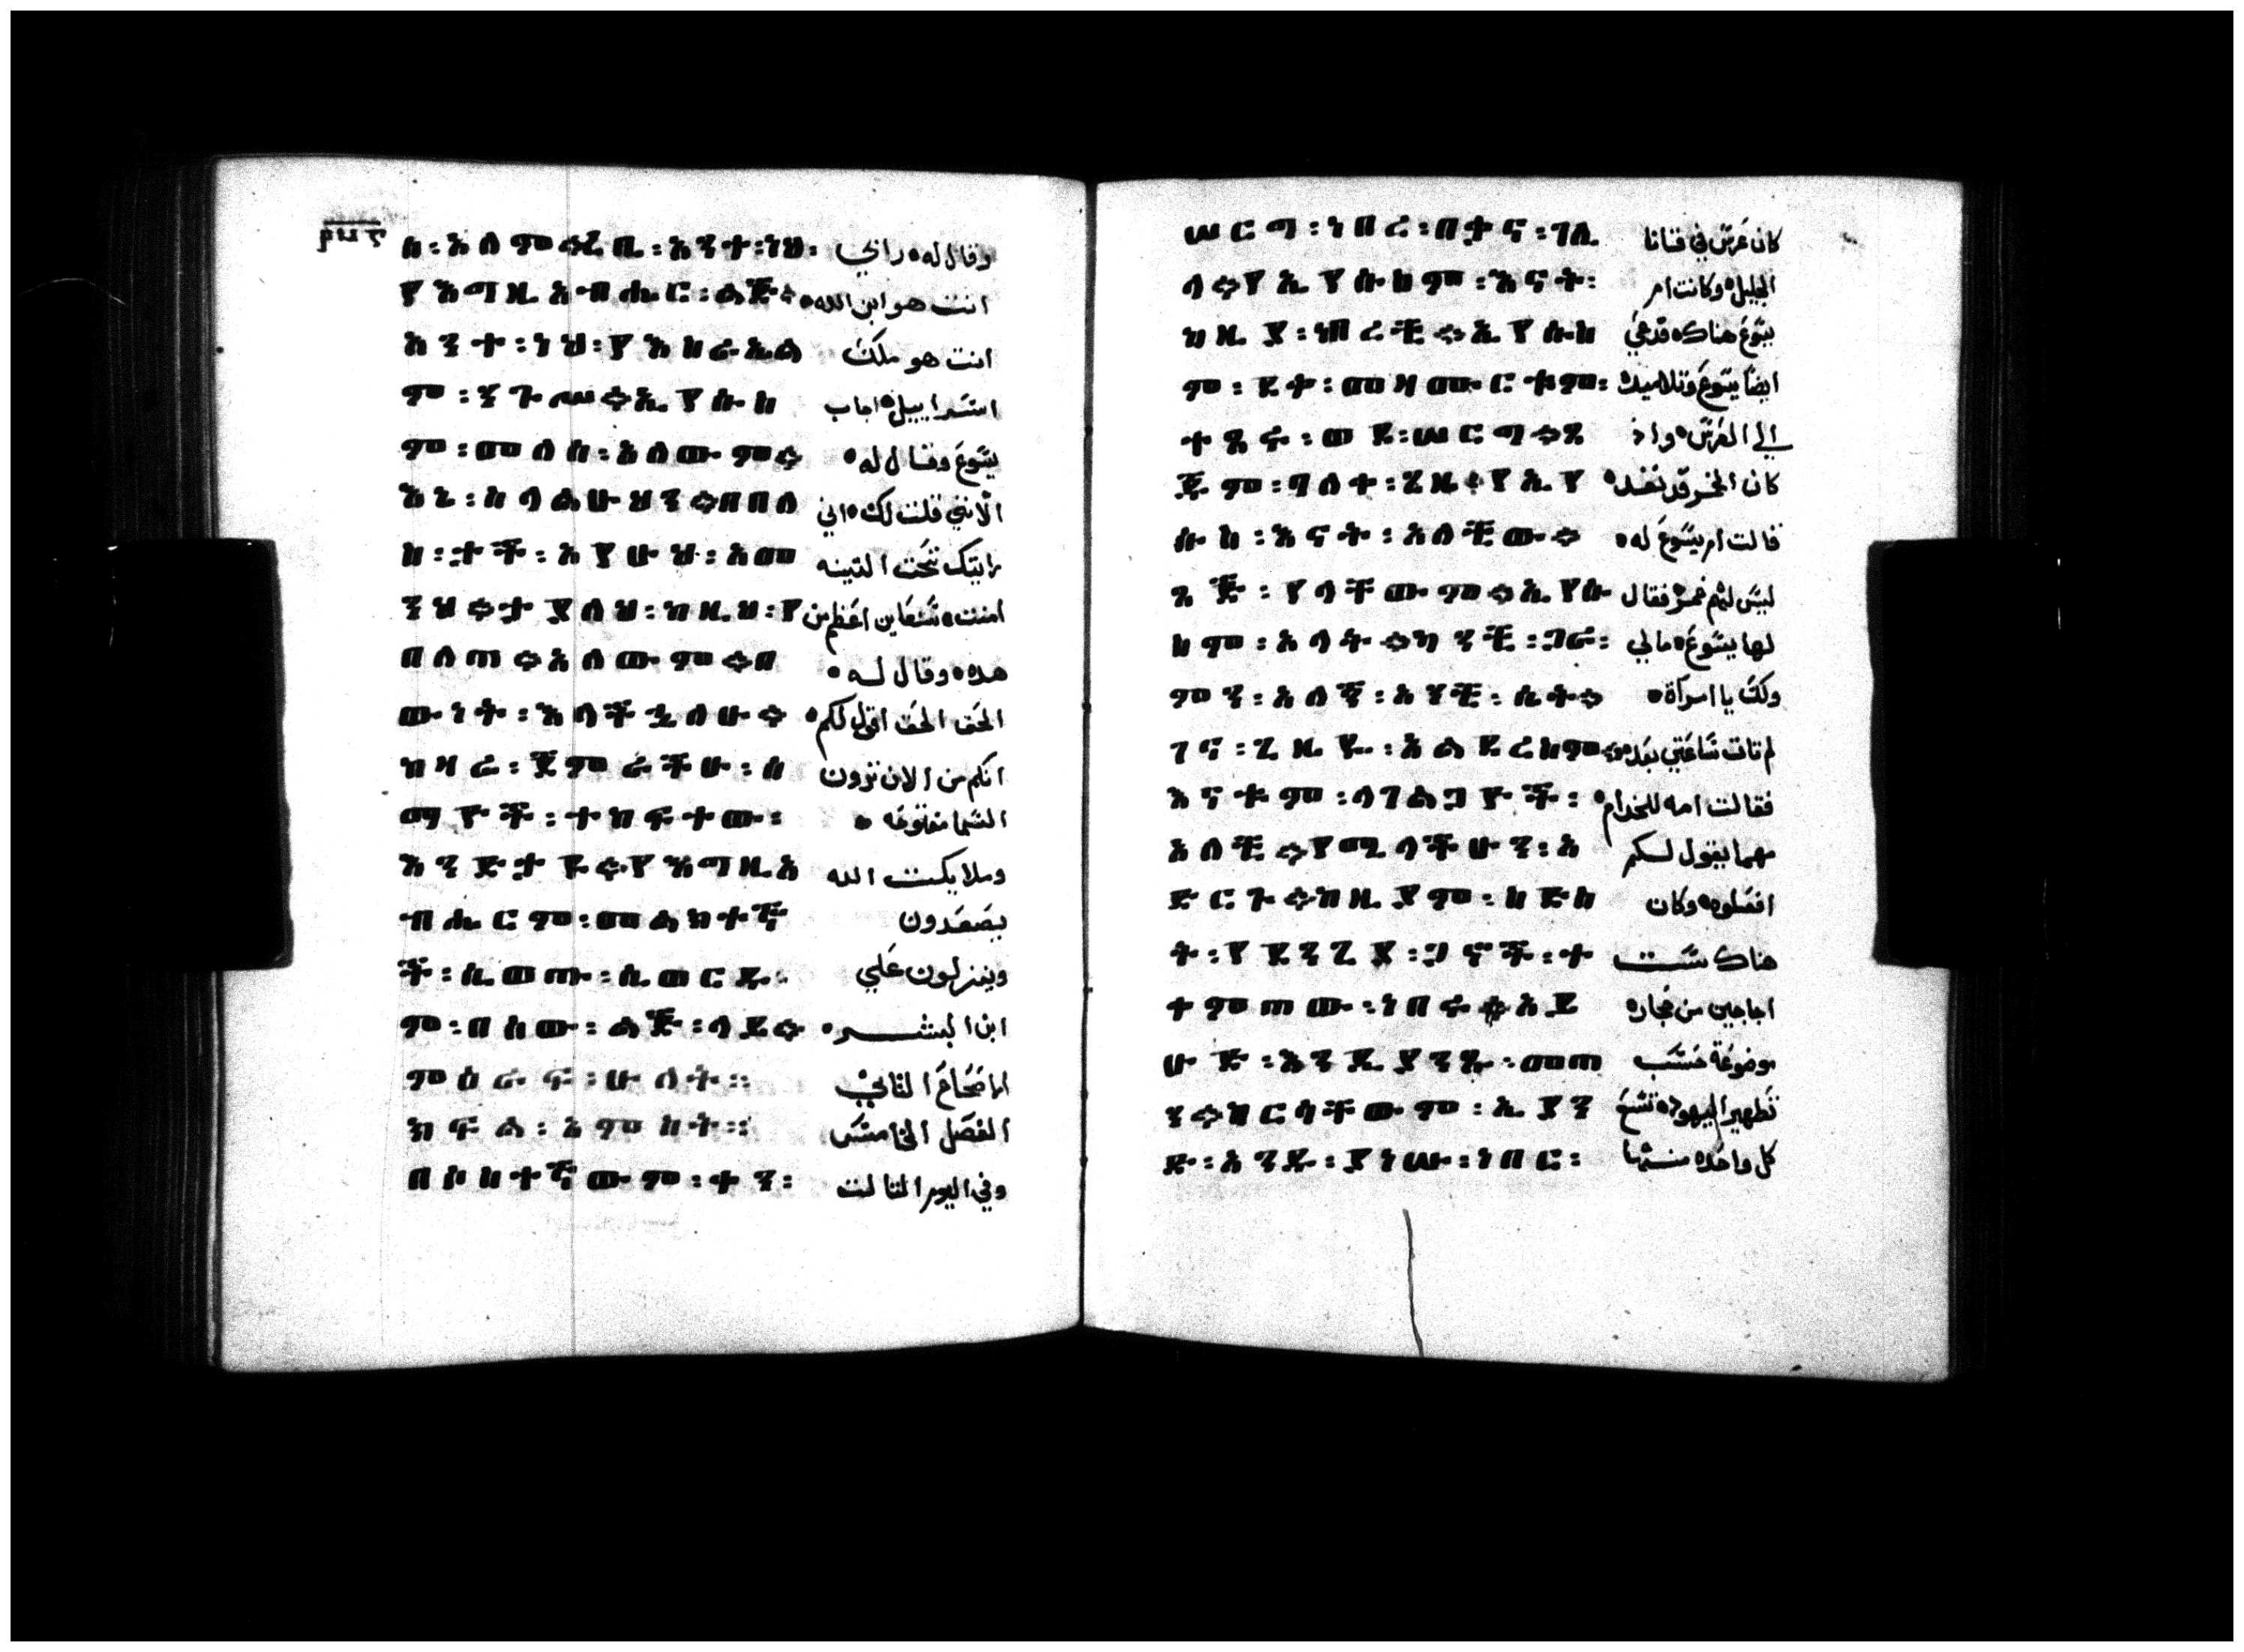 ስ፡አለም፨ረቢ፡አንተ፡ነህ፡ وقال له رابي
የእግዚአብሔር፡ልጅ፨ انت هو ابن الله
አንተ፡ነህ፡የእስራኤል انت هو ملك
ም፡ንጉሥ፨ኢየሱስ اسراييل اجاب
ም፡መለሰ፡አለውም፨ يسوع وقال له
እኔ፡ስላልሁህን፨በበለ الانني قلت لك اني
ስ፡ታች፡አየሁህ፡አመ رايتك تحت التينه
ንህ፨ትያለህ፡ከዚህ፡የ امنت ستعاين اعظم من
በለጠ፨አለውም፨በ هده وقال له
ውነት፡እላችኋለሁ፨ الحق الحق اقول لكم
ከዛሬ፡ጀምራችሁ፡ሰ انكم من الان ترون
ማዮች፡ተከፍተው፡ السما مفتوحه
እንድታዩ፨የእግዚአ وملايكت الله
ብሔርም፡መልክተኞ يصعدون
ች፡ሲወጡ፡ሲወርዱ፡ وينزلون علي
ም፡በሰው፡ልጅ፡ላይ፨ ابن البشر
ምዕራፍ፡ሁለት፨ الاصحاح الثاني
ክፍል፡አምስት፨ الفصل الخامس
በሶስተኛውም፡ቀን፡ وفي اليوم الثالت
ሠርግ፡ነበረ፡በቃና፡ገሊ كان عرس في قانا
ላ፨የኢየሱስም፡እናት፡ الجليل وكانت ام
ከዚያ፡ነበረች፨ኢየሱስ يسوع هناك قدعي
ም፡ደቀ፡መዛሙርቱም፡ ايضا يسوع وتلاميده
ተጠሩ፡ወደ፡ሠርግ፨ጠ الي العرس واذ
ጅም፡ጎለተ፡ጊዜ፨የኢየ كان الخمر قد نفد
ሱስ፡እናት፡አለችው፨ قالت ام يسوع له
ጠጅ፡የላቸውም፨ኢየሱ ليس لهم خمر فقال
ስም፡አላት፨ከንቺ፡ጋራ፡ لها يسوع مالي
ምን፡አለኝ፡አንቺ፡ሴት፨ ولك يا امراة
ገና፡ጊዜዬ፡አልደረሰም፨ لم تات ساعتي بعد
እናቱም፡ላገልጋዮች፡ فقالت امه للخدام
አለች፨የሚላችሁን፡አ مهما يقول لكم
ድርጉ፨ከዚያም፡ስድስ افعلوه وكان
ት፡የደንጊያ፡ጋኖች፡ተ هناك ست
ቀምጠው፡ነበሩ፨አይ اجاجين من حجاره
ሁድ፡እንዲያነጹ፡መጠ موضوعة حسب
ን፨ከርሳቸውም፡ኢያን تطهير اليهود تسع
ዱ፡አንዱ፡ይነሡ፡ነበር፡ كل واحده منها